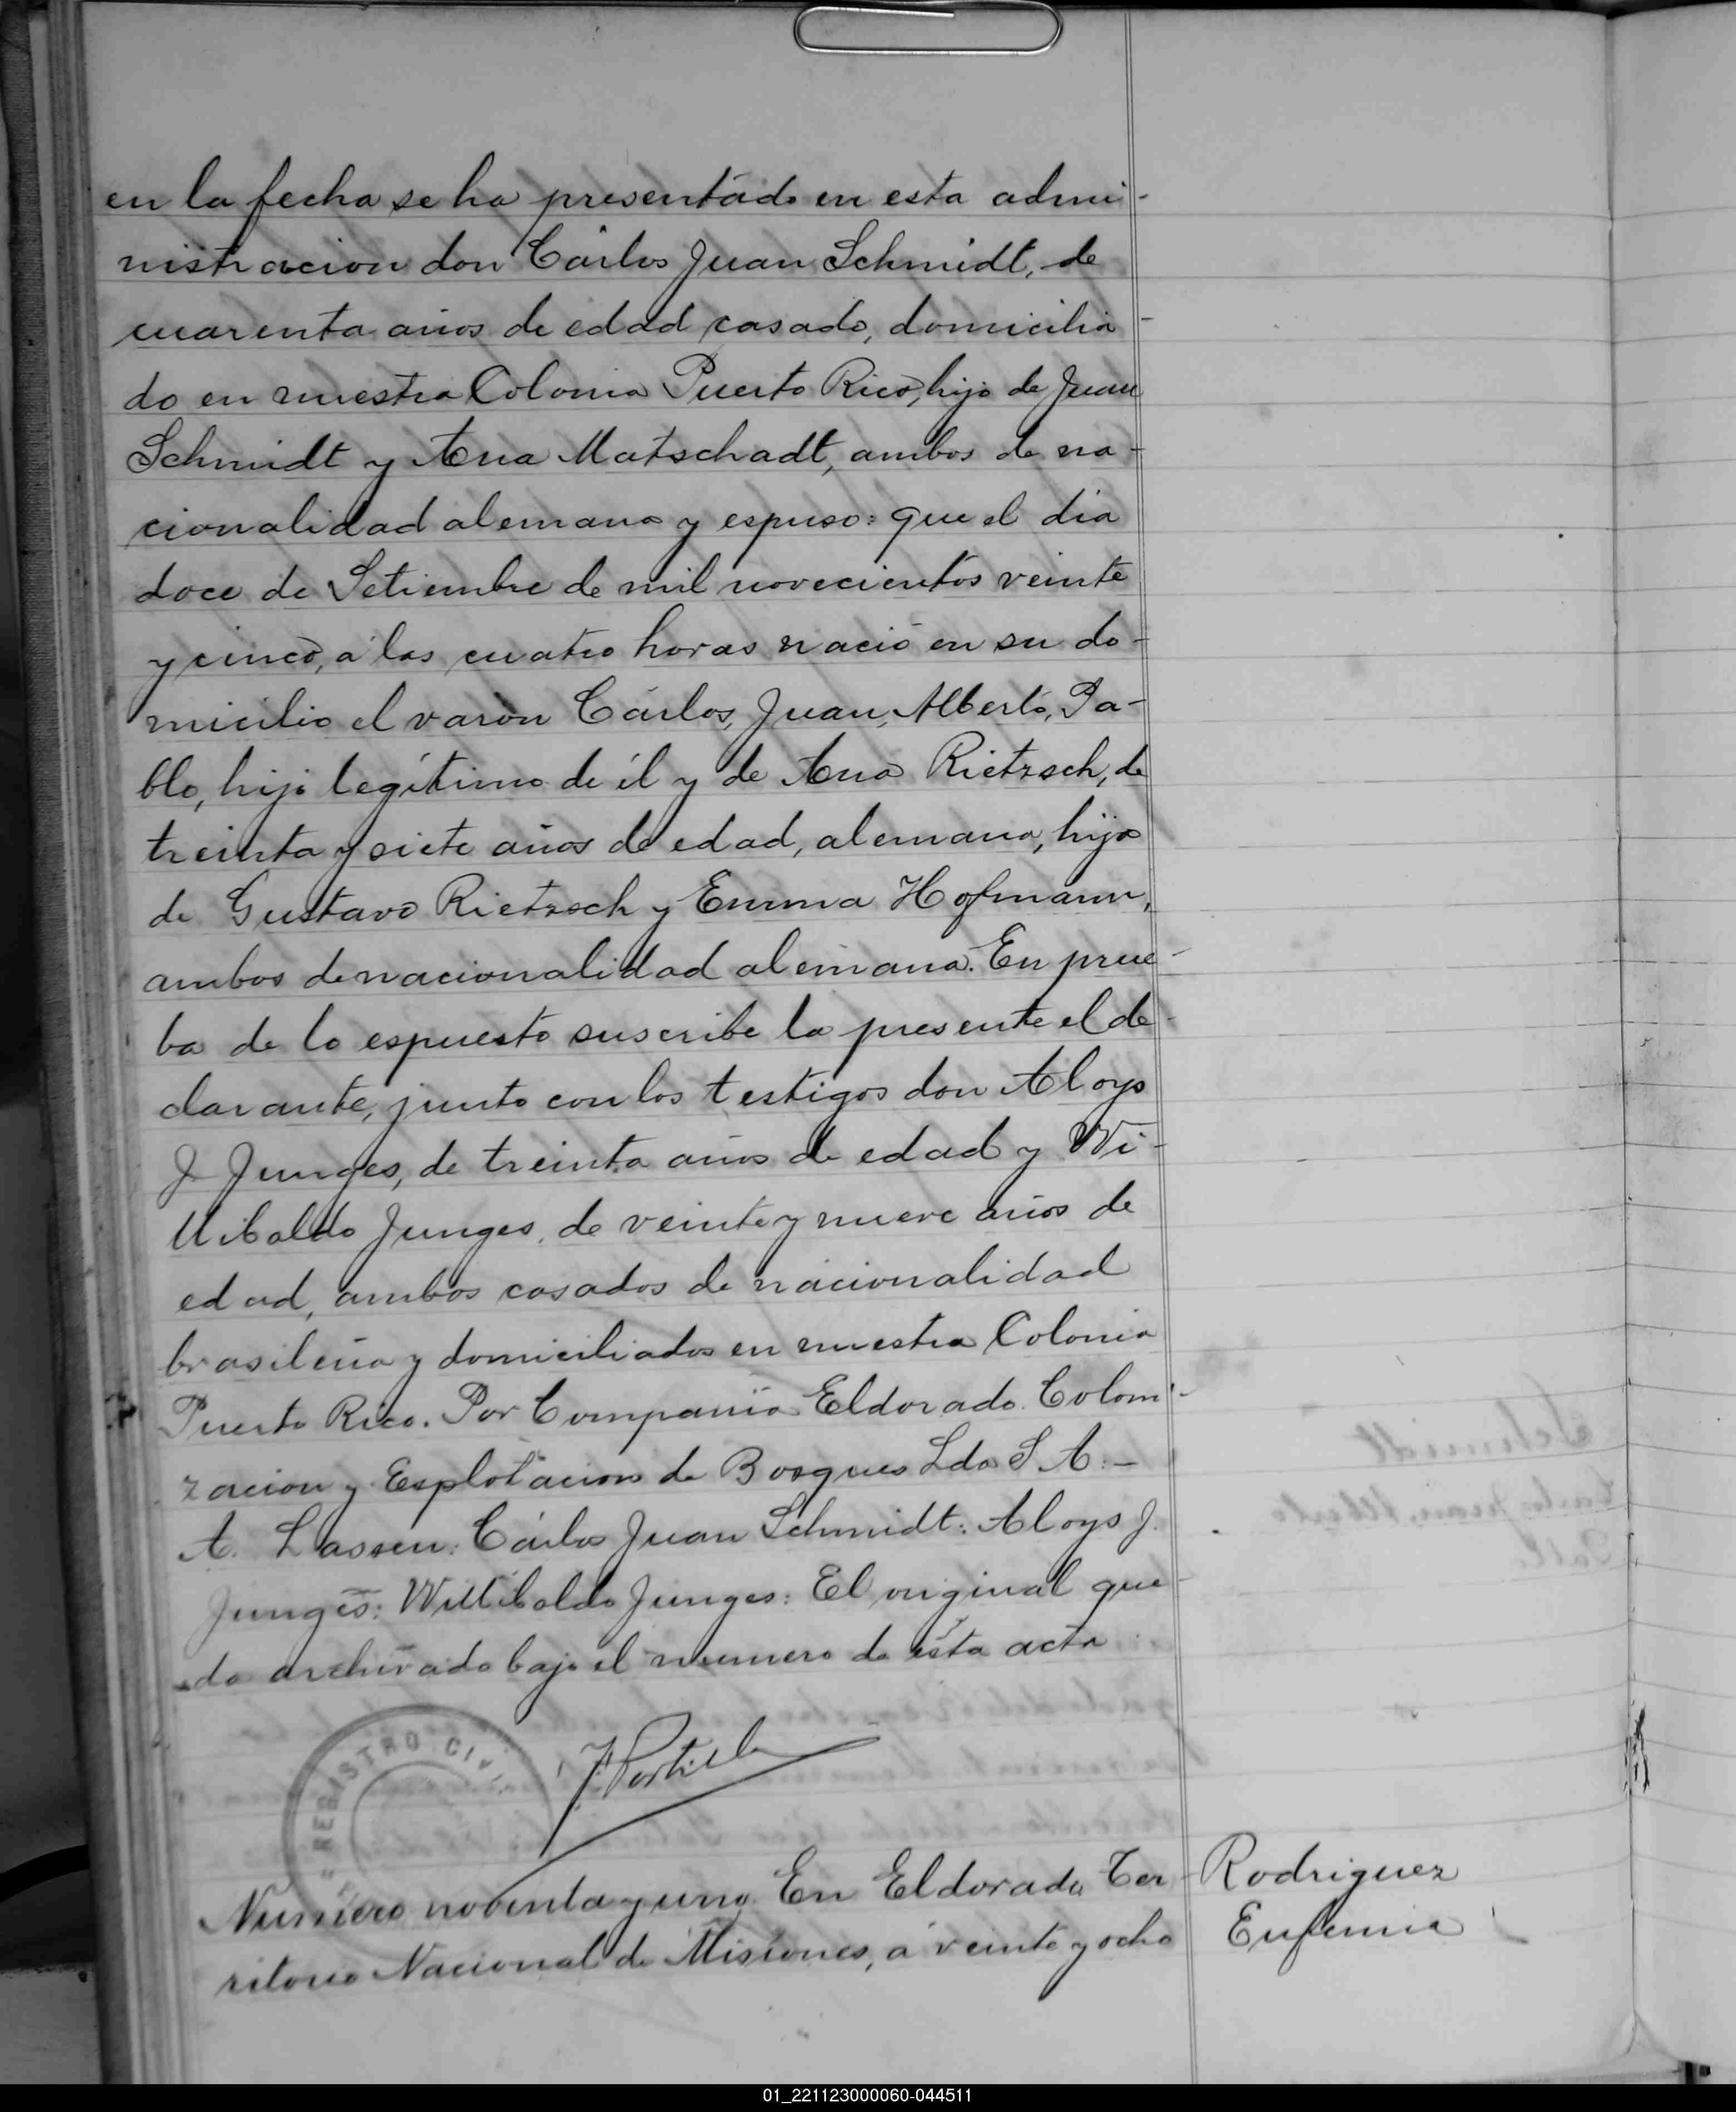 en la fecha se ha presentado en esta admi-
nistracion don Cárlos Juan Schmidt, de
cuarenta años de edad casado, domicilia-
do en nuestra Colonia Puerto Rico, hijo de Juan
Schmidt y Ana Matschadt, ambos de na-
cionalidad alemana y espuso: que el dia
doce de Setiembre de mil novecientos veinte
y cinco, a las cuatro horas nació en su do-
micilio el varón Cárlos, Juan, Alberto, Pa-
blo, hijo legítimo de él y de Ana Rietzsch, de
treinta y siete años de edad, alemana, hija
de Gustavo Rietzsch y Emma Hofmann,
ambos de nacionalidad alemana. En prue-
ba de lo espuesto suscribe la presente el de-
clarante, junto con los testigos don Aloys
J. Junges, de treinta años de edad y Wi-
llibaldo Junges, de veinte y nueve años de
edad, ambos casados de nacionalidad
brasileña y domiciliados en nuestra Colonia
Puerto Rico. Por Compañia Eldorado Coloni-
zacion y Esplotacion de Bosques Lda S. A. -
A. Lassen: Cárlos Juan Schmidt: Aloys J.
Junges: Willibaldo Junges: El original que-
da archivado bajo el numero de esta acta
REGISTRO CIVIL
J. Portillo
Número noventa y uno. En Eldorado Ter-
ritorio Nacional de Misiones, á veinte y ocho
Rodriguez
Eufemia
01_221123000060-044511